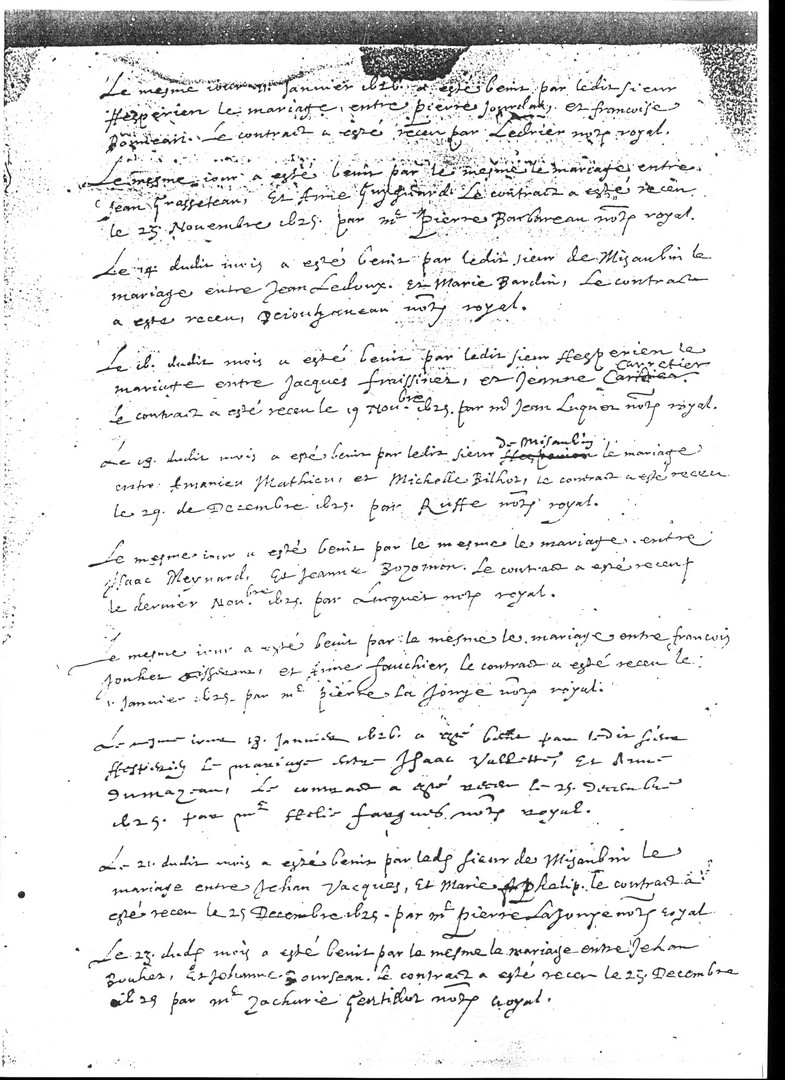 Le mesme iour 11. Janvier 1626. a esté benit par ledit sieur
Hesperien le mariage, entre pierre Jourdain, et francoise
Le contract a esté receu par Ledrier notre royal.
Le mesme iour a esté benit par le mesme le mariage entre
Jean Grasseteau, Et Anne Guignard Le contract a esté receu
le 23 Novembre 1625. par me Pierre Barbareau notre royal.
Le 14 dudit mois a esté benit par ledit sieur de Misaubin le
mariage entre Jean Ledoux. et Marie Bardin, Le contract
a este receu, notre royal.
Le 16. dudit mois a esté benit par ledit sieur Hesperien le
mariage entre Jacques fraissines, et Jeanne Carretier
Le contract a esté receu le 19 Novbre 1625. par me Jean Luquet notre royal.
Le 19. dudit mois a esté benit par ledit sieur De Misaubin le mariage
entre Amanieu Mathieu, et Micholle Bilhot, le contract a esté receu
le 29. de Decembre 1625. par Ruffe notre royal.
Le mesme iour a esté benit par le mesme le mariage entre
Isaac Meynard, Et Jeanne Le contract a esté receu
le dernier Novbre 1625. par Lucquet notre royal.
Le mesme iour a esté benit par le mesme le mariage entre francois
Jouhet et Anne fauchier, le contract a esté receu le
Janvier 1625. par me pierre La Jonye notre royal.
Le mesme iour 19. Janvier 1626. a esté benit par ledit sieur
Hesperien Le mariage entre Isaac Vallette, Et Anne
Dumazeau, Le contract a esté receu le 25. Decembre
1625. par me Helie fargues notre royal.
Le 21. dudit mois a esté benit par ledit sieur de Misaubin le
mariage entre Jehan Vacques, Et Marie phelip. le contract a
esté receu le 25 Decembre 1625. par me pierre Lajonye notre royal
Le 23. dudit mois a esté benit par le mesme le mariage entre Jehan
Bouhet, Et Johanne Bourseau. le contract a esté receu le 25. Decembre
1625 par me Zacharie Gentillot notre royal.